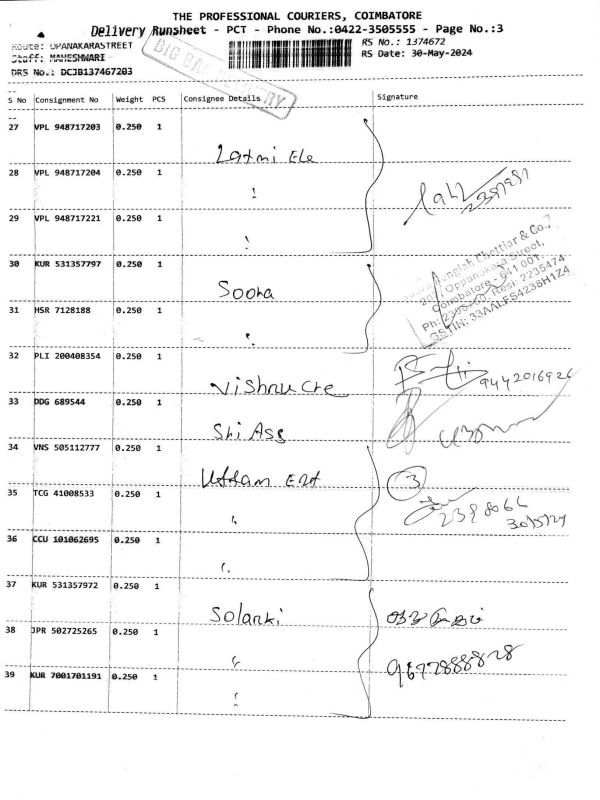 THE PROFESSIONAL COURIERS, COIMBATORE
Delivery Runsheet - PCT - Phone No.:0422-3505555 - Page No.:3
Route: OPANAKARASTREET
RS No.: 1374672
Staff: MAHESHWARI
RS Date: 30-May-2024
DRS No.: DCJB137467203
BIG BAG DELIVERY
S No Consignment No Weight PCS Consignee Details Signature
27 VPL 948717203 0.250 1
Laxmi Ele
28 VPL 948717204 0.250 1
29 VPL 948717221 0.250 1
30 KUR 531357797 0.250 1
Sooha
31 HSR 7128188 0.250 1
Chettiar & Co.,
Oppanakara Street,
Coimbatore - 641 001.
Resi: 2235474
GSTIN: 33AALFS4238H1Z4
32 PLI 200408354 0.250 1
Vishnu Cre
9442016926
33 DDG 689544 0.250 1
Shi Ass
34 VNS 505112777 0.250 1
Uttam Ent
3
35 TCG 41008533 0.250 1
30/5/24
36 CCU 101062695 0.250 1
37 KUR 531357972 0.250 1
Solanki
38 JPR 502725265 0.250 1
9677888828
39 KUR 7001701191 0.250 1